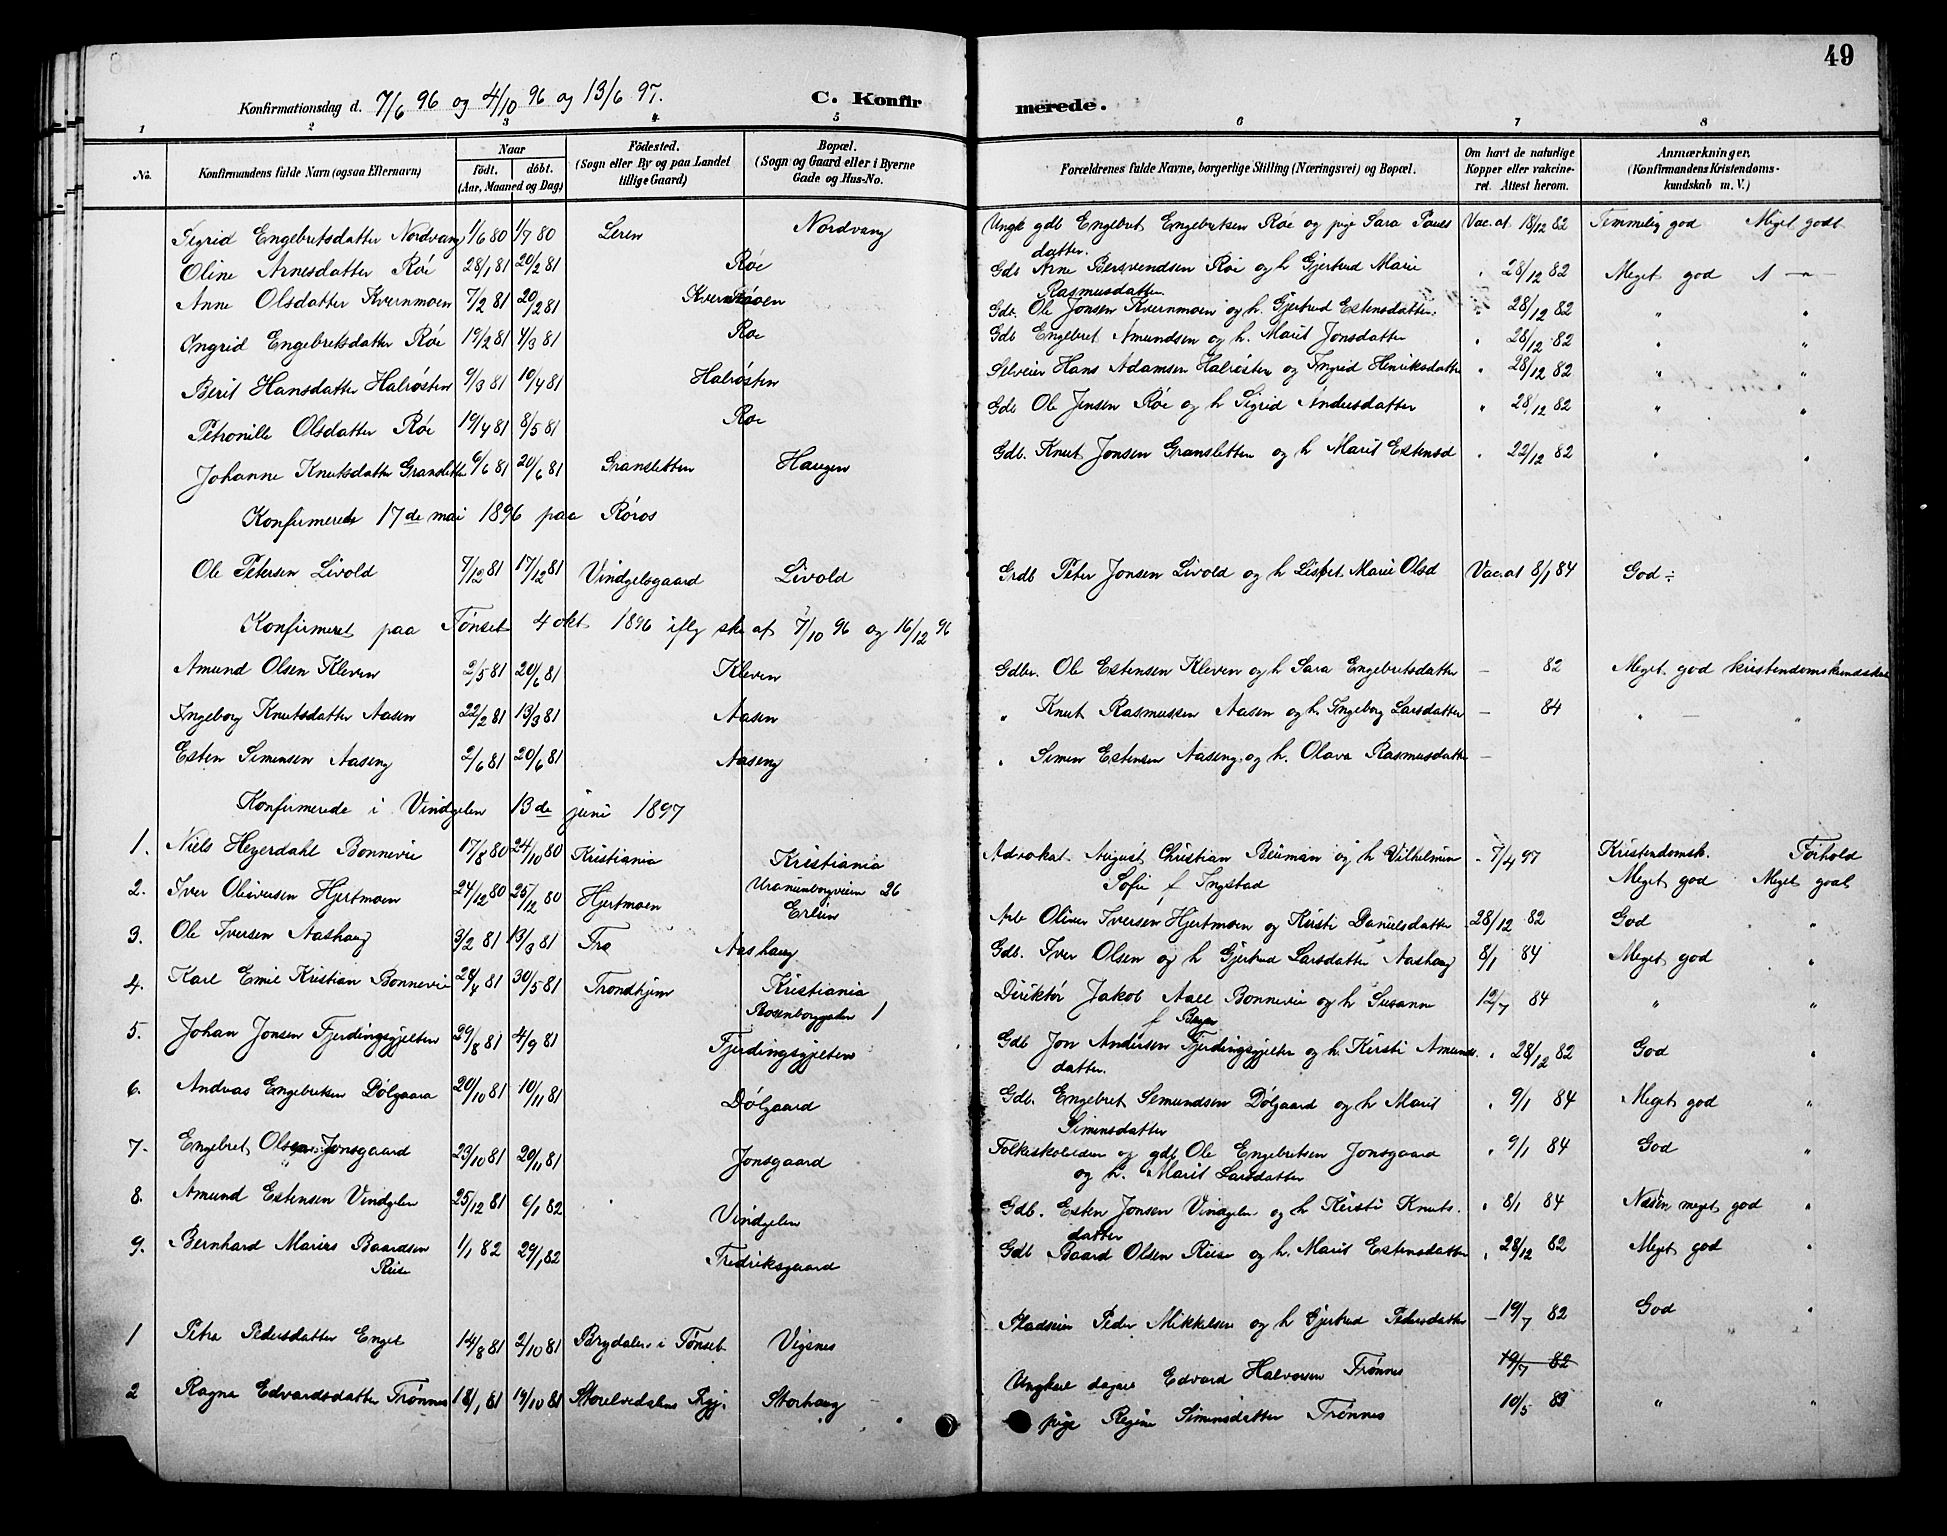 49
Konfirmationsdag d. 7/6 96 og 4/10 96 og 13/6 97. C. Konfirmerede.
1 2 3 4 5 6 7 8
No. Konfirmandens fulde Navn (ogsaa Efternavn) Naar födt. döbt. (Aar, Maaned og Dag) Födested. (Sogn eller By og paa Landet tillige Gaard) Bopæl. (Sogn og Gaard eller i Byerne Gade og Hus-No. Forældrenes fulde Navne, borgerlige Stilling (Næringsvei) og Bopæl. Om havt de naturlige Kopper eller vakcineret. Attest herom. Anmærkninger. (Konfirmandens Kristendomskundskab m. V.)
Sigrid Engebretsdatter Nordvang 1/6 80 1/7 80 Leren Nordvang Ungk gdb Engebret Engebretsen Røe og pige Sara Pouls Vac. at 18/12 82 Temmelig god Meget godt
datter.
Oline Arnesdatter Røe 28/1 81 20/2 81 Røe Gdb Arne Bersvendsen Røe og h Gjertrud Marie " 28/12 82 Meget god
Rasmusdatter
Anne Olsdatter Kvernmoen 7/2 81 20/2 81 Kvernmoen Gdb. Ole Jonsen Kvernmoen og h. Gjertrud Estensdatter. " 28/12 82 " "
Ingrid Engebretsdatter Røe 19/2 81 4/3 81 Roe Gdb Engebret Amundsen og h. Marit Jonsdatter " 28/12 82 " "
Berit Hansdatter Halrøsten 9/3 81 10/4 81 Halrøsten Selveier Hans Adamsen Halrøsten og Ingrid Henriksdatter " 28/12 82 " "
Petronille Olsdatter Røe 19/4 81 8/5 81 Roe Gdb Ole Jensen Røe og h Sigrid Andersdatter " 28/12 82 " "
Johanne Knutsdatter Gransletten 6/6 81 20/6 81 Gransletten Haugen Gdb. Knut Jonsen Gransletten og h Marit Estensd " 22/12 82 " "
Konfirmerede 17de mai 1896 paa Røros
Ole Petersen Livold 7/12 81 17/12 81 Vindgelsgaard Livold Grdb Peter Jonsen Livold og h Lisbet Marie Olsd Vac. at 8/1 84 God ÷
Konfirmeret paa Tønset 4 okt 1896 iflg skr af 7/10 96 og 16/12 96
Amund Olsen Kleven 2/5 81 20/6 81 Kleven Gdbr. Ole Estensen Kleven og h Sara Engebretsdatter — 82 Meget god kristendomskundskab
Ingeborg Knutsdatter Aasen 22/2 81 13/3 81 Aasen " Knut Rasmussen Aasen og h. Ingeborg Larsdatter — 84 " — "
Esten Simensen Aaseng 2/6 81 20/6 81 Aaseng " Simen Estensen Aaseng og h. Olava Rasmusdatter —
Konfirmerede i Vindgelen 13de juni 1897
1. Niels Heyerdahl Bonnevie 17/8 80 24/10 80 Kristiania Kristiania Advokat August Christian og h Vilhelmine 7/4 97 Kristendomsk. Forhold
Uranienborgveien 26 Sofie f Ingstad Meget god Meget godt
2. Iver Oliversen Hjertmoen 24/12 80 25/12 80 Hjertmoen Erlien Arb Oliver Iversen Hjertmoen og Kirsti Danielsdatter 28/12 82 God "
3. Ole Iversen Aashaug 3/2 81 13/3 81 Aashaug Gdb. Iver Olsen og h Gjertrud Larsdatter Aashaug 8/1 84 Meget god "
4. Karl Emil Kristian Bonnevie 28/4 81 30/5 81 Trondhjem Kristiania Direktør Jakob Aall Bonnevie og h Susanne 12/7 84 " "
Rosenborggaden 1 f Bryn
5. Johan Jonsen Fjerdingsgjelten 29/8 81 4/9 81 Fjerdingsgjelten Gdb Jon Andersen Fjerdingsgjelten og h. Kirsti Amunds. " 28/12 82 God "
datter.
6. Andreas Engebretsen Dølgaard 20/10 81 10/11 81 Dølgaard Gdb. Engebret Semundsen Dølgaard og h Marit " 9/1 84 Meget god "
Simensdatter
7. Engebret Olsen Jonsgaard 23/10 81 20/11 81 Jonsgaard Folkeskoleleder og gdb Ole Engebretsen Jonsgaard " 9/1 84 God "
og h. Marit Larsdatter
8. Amund Estensen Vindgelen 25/12 81 6/1 82 Vindgelen Gdb. Esten Jonsen Vindgelen og h Kirsti Knuts. " 8/1 84 Næsten meget god "
datter
9. Bernhard Marius Baardsen 1/1 82 29/1 82 Fredriksgaard Gdb Baard Olsen Reise og h. Marit Estensdatter " 28/12 82 Meget god "
Reise
1 Petra Pedersdatter Enget 14/8 81 2/10 81 Brydalen i Tønset Vigsnes Pladseier Peder Mikkelsen og h Gjertrud Pedersdatter — 19/7 82 God "
19/7 82
2 Ragna Edvardsdatter Trønnes 18/1 81 19/10 81 Storelvedalen Storhaug Ungkarl Edvard Halvorsen Trønnes 10/5 83 " "
pige Regine Simensdatter Trønnes